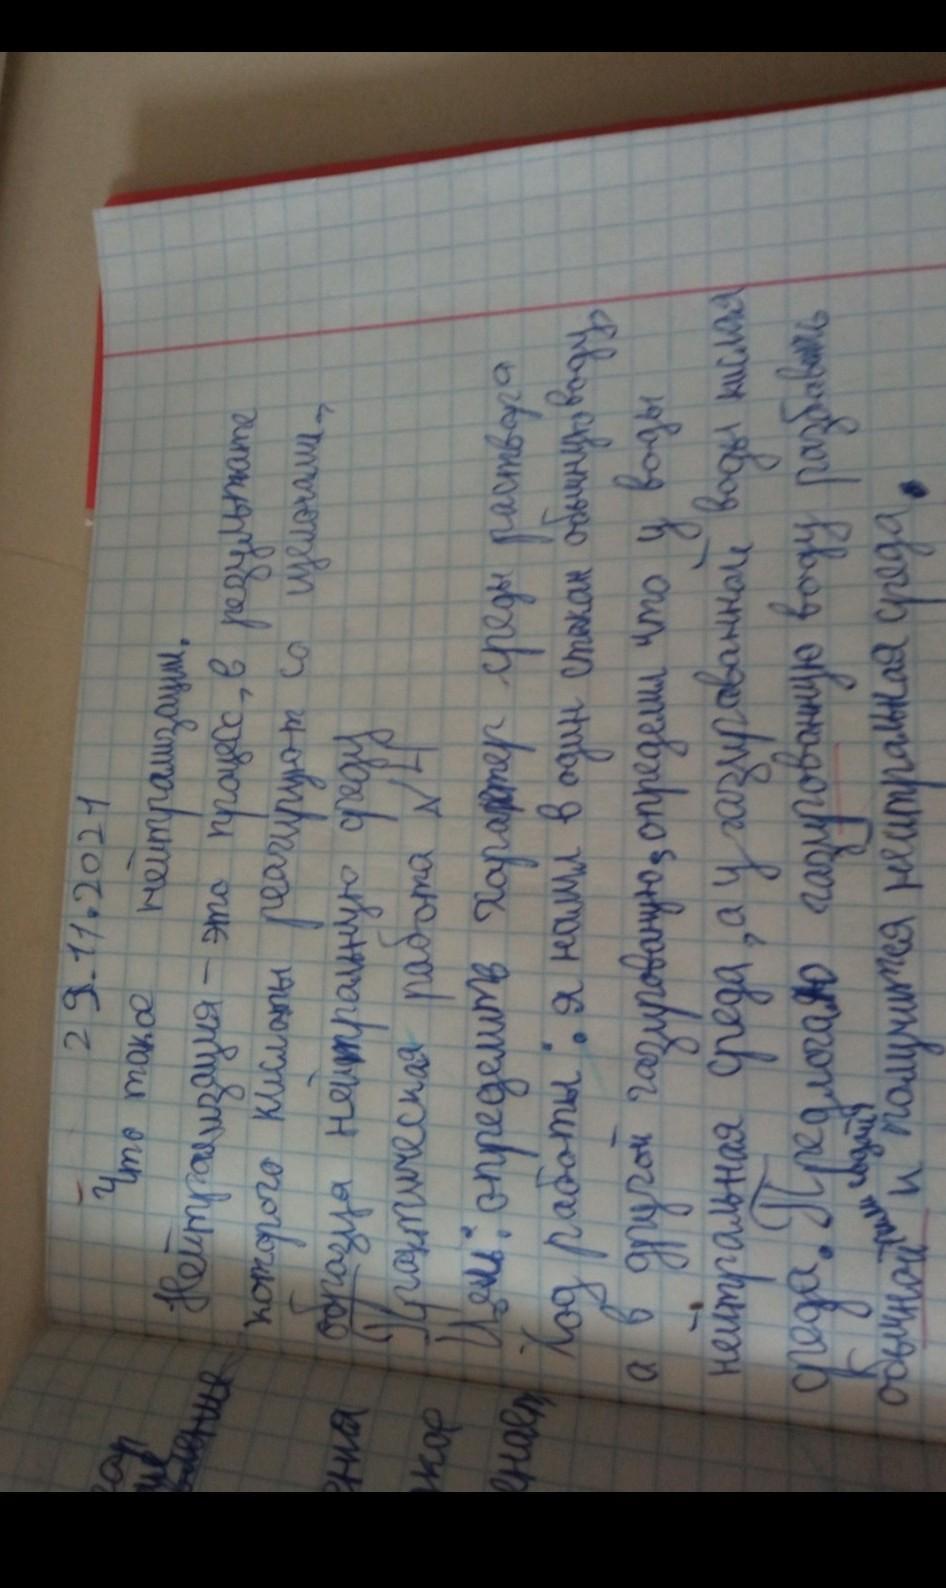 29.11.2021
Что такое нейтрализации.
Нейтрализация - это процесс, в результате
которого кислоты реагируют со щелочами,
образуя нейтральную среду
Практическая работа №4
Цель: определить характер среды раствора
Ход работы: я налил в один стакан обычную воду,
а в другой газированную, определил что у воды
нейтральная среда, а у газированной воды кислая
среда. Предлогаю газированную воду разбавить
обычной и получится нейтральная среда.
ение
ения
кор
енает